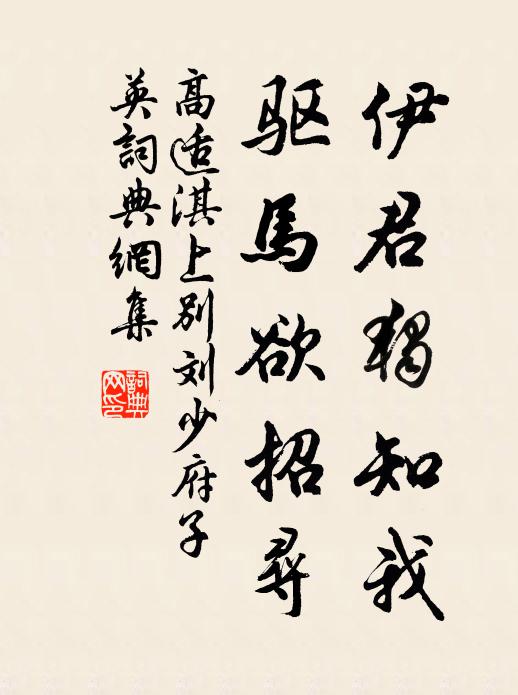 伊君独知我
驱馬欲招尋
高适淇上别刘少府子
英詞典網集
詞典
网印